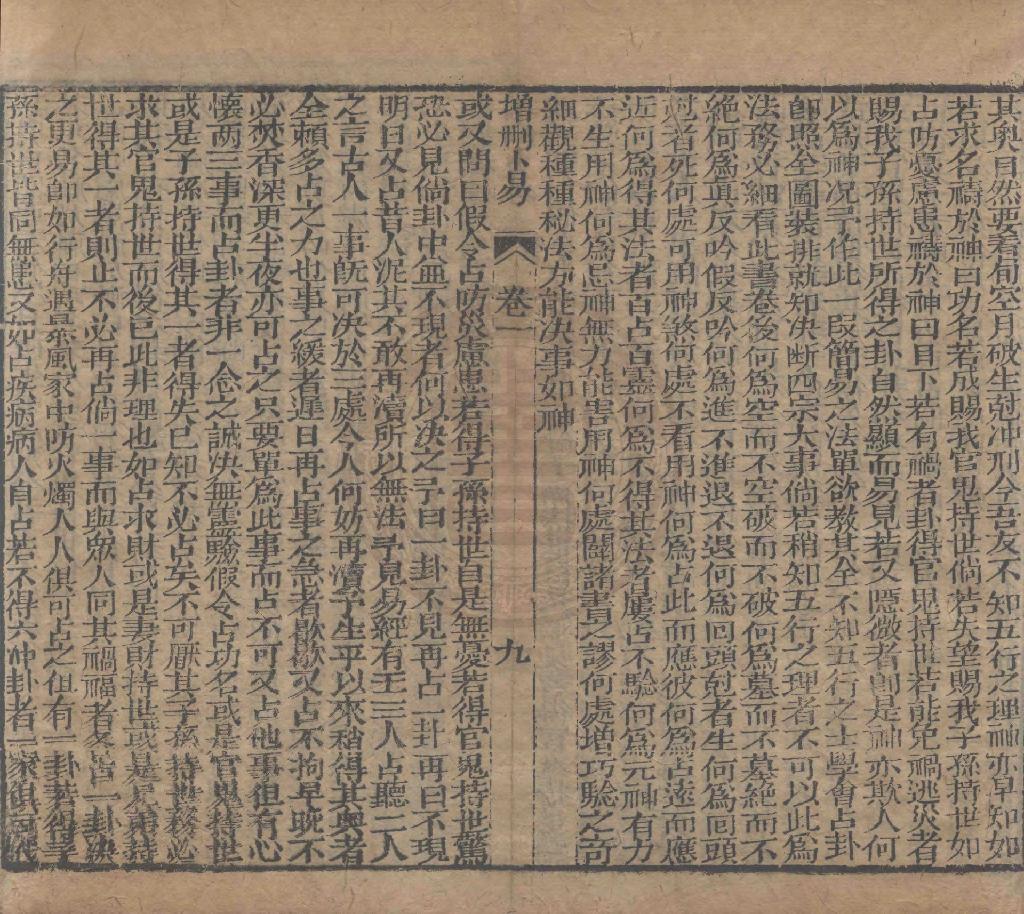 其奥自然要看旬空月破生尅冲刑今吾友不知五行之理神亦早知如
若求名禱於神曰功名若成賜我官鬼持世倘若失望賜我子孫持世如
占防憂慮患禱於神曰目下若有禍者卦得官鬼持世若能免禍逃災者
賜我子孫持世所得之卦自然顯而易見若又隱微者卽是神亦欺人何
以爲神况予作此一叚簡易之法單欲教其全不知五行之士學會占卦
卽照全圖裝排就知决断四宗大事倘若稍知五行之理者不可以此爲
法務必細看此書卷後何爲空而不空破而不破何爲墓而不墓絶而不
絶何爲真反吟假反吟何爲進不進退不退何爲回頭尅者生何爲回頭
尅者死何處可用神煞何處不看用神何爲占此而應彼何爲占遠而應
近何爲得其法者百占百靈何爲不得其法者屢占不驗何爲元神有力
不生用神何爲忌神無力能害用神何處闢諸書之謬何處增巧騐之奇
細觀種種秘法方能决事如神
增删卜易 卷一 九
或又問曰假令占防災慮患若得子孫持世自是無憂若得官鬼持世驚
恐必見倘卦中並不現者何以决之予曰一卦不見再占一卦再曰不現
明日又占昔人泥其不敢再瀆所以無法予見易經有王三人占聽二人
之言古人一事旣可决於三處今人何妨再瀆予生平以來稍得其奥者
全賴多占之力也事之緩者遲日再占事之急者歇歇又占不拘早晚不
必焚香深更半夜亦可占之只要單爲此事而占不可又占他事但有心
懐两三事而占卦者非一念之誠决無靈驗假令占功名或是官鬼持世
或是子孫持世得其一者得失已知不必占矣不可厭其子孫持世務必
求其官鬼持世而後已此非理也如占求財或是妻財持世或是兄弟持
世得其一者則止不必再占倘一事而與衆人同其禍福者各占一卦决
之更易卽如行舟遇暴風家中防火燭人人俱可占之但有一卦若得子
孫持世皆同無恙又如占疾病病人自占若不得六冲卦者一家俱可代